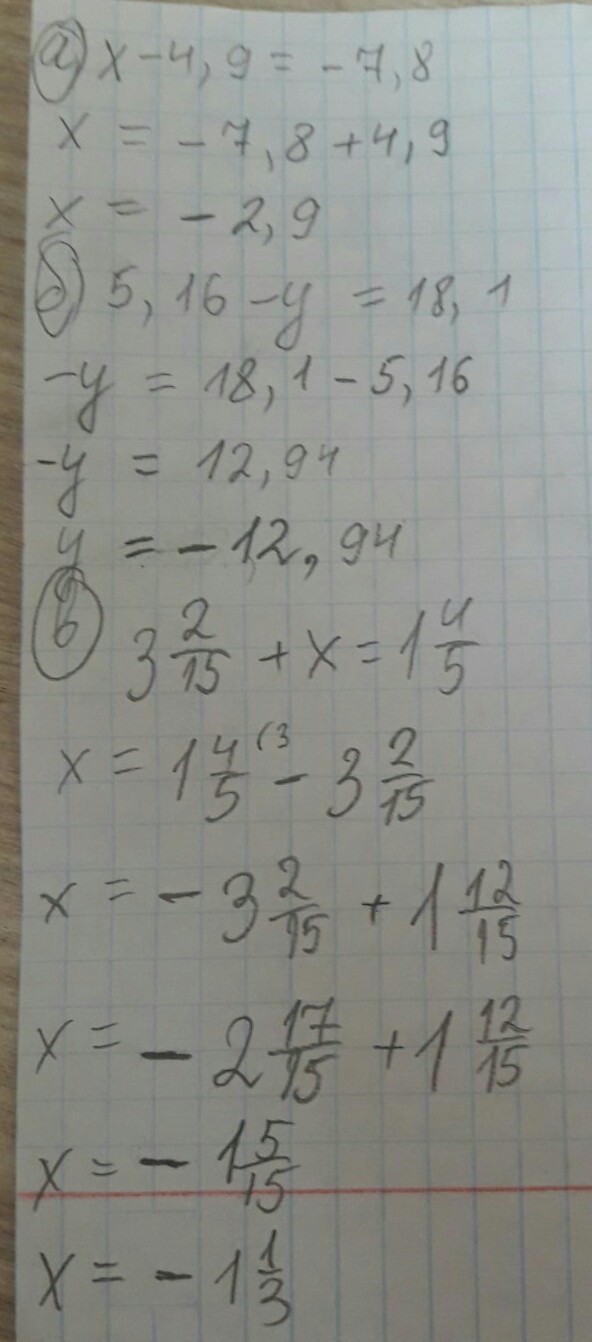 а) x - 4,9 = -7,8
x = -7,8 + 4,9
x = -2,9
б) 5,16 - y = 18,1
-y = 18,1 - 5,16
-y = 12,94
y = -12,94
в) 3 2/15 + x = 1 4/5
x = 1 4/5 (3 - 3 2/15
x = -3 2/15 + 1 12/15
x = -2 17/15 + 1 12/15
x = -1 5/15
x = -1 1/3